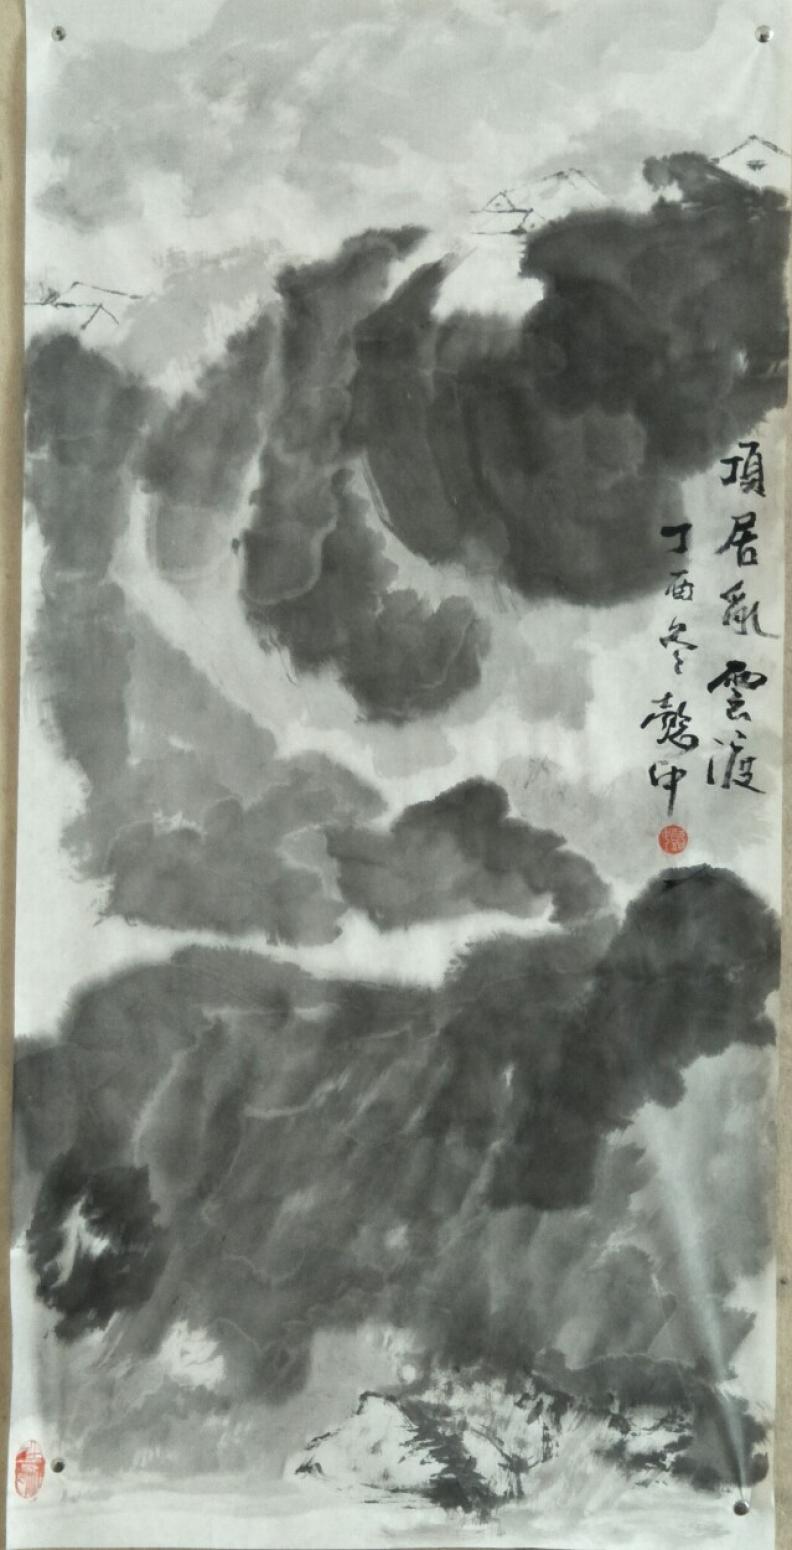 頂居亂雲渡
丁酉冬懿中